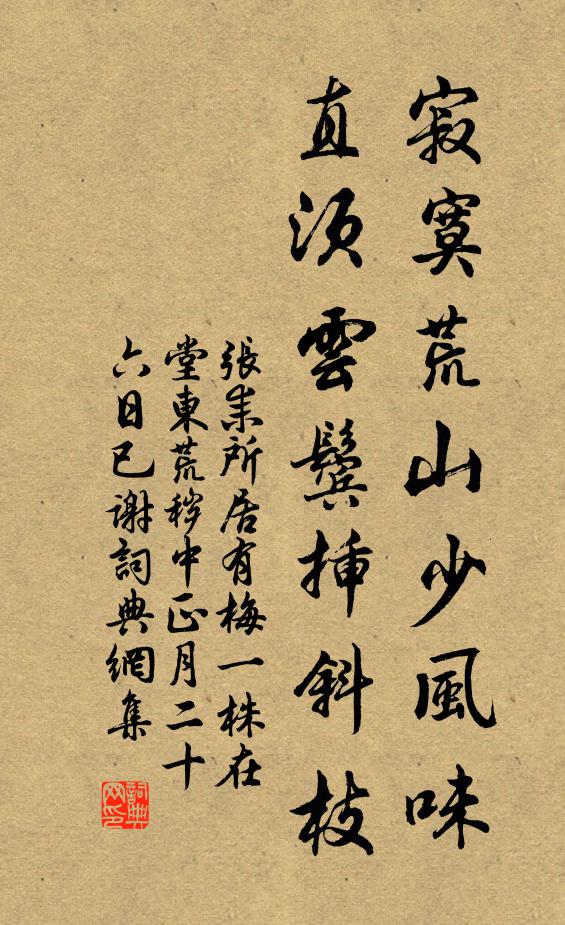 寂寞荒山少風味
直須雲鬢插斜枝
張耒所居有梅一株在
堂東荒穢中正月二十
六日已謝詞典網集
詞典网印